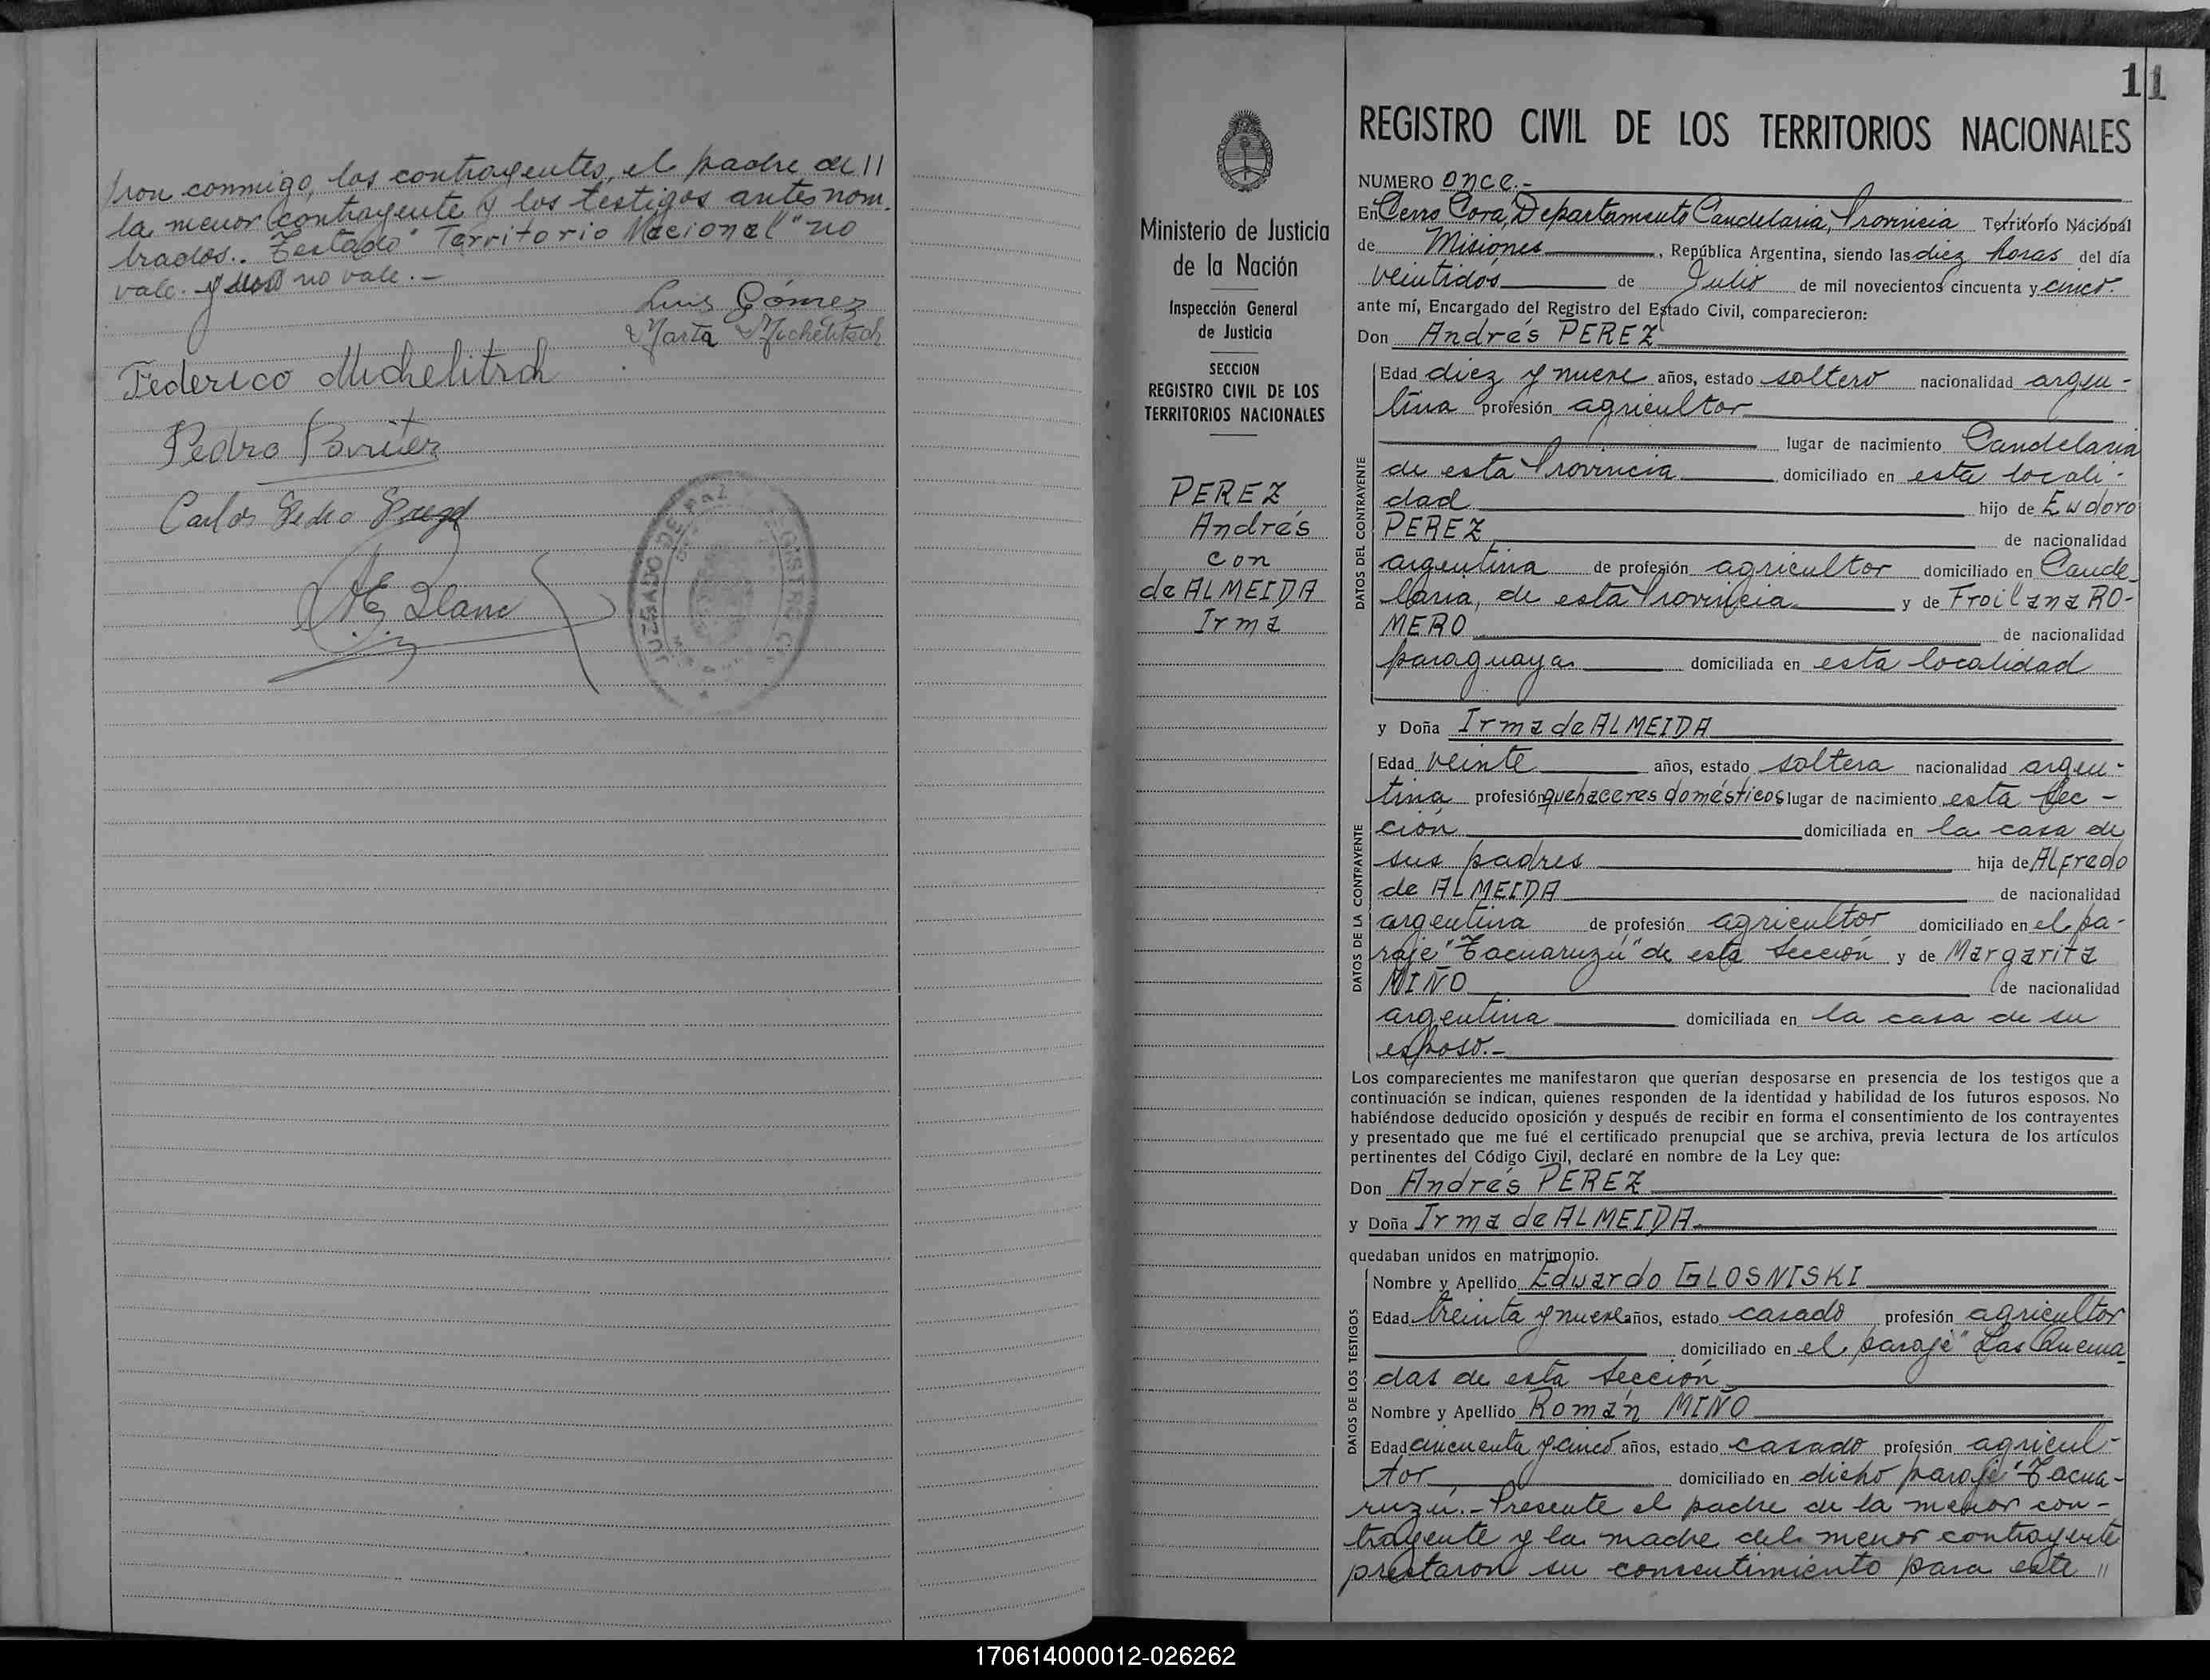 //ron conmigo, los contrayentes, el padre de //
la menor contrayente y los testigos antes nom.
brados.. Testado "Territorio Nacional" no
vale. y no vale.-
Luis Gómez
Marta Michelitsch
Federico Michelitsch
Pedro
Carlos Pedro
JUZGADO DE PAZ
11
REGISTRO CIVIL DE LOS TERRITORIOS NACIONALES
NUMERO once.-
En Cerro Corá, Departamento Candelaria, Provincia Territorio Nacional
de Misiones, República Argentina, siendo las diez horas del día
veintidós de Julio de mil novecientos cincuenta y cinco.
ante mí, Encargado del Registro del Estado Civil, comparecieron:
Don Andrés PEREZ
DATOS DEL CONTRAYENTE
Edad diez y nueve años, estado soltero nacionalidad argen-
tina profesión agricultor
lugar de nacimiento Candelaria
de esta Provincia domiciliado en esta locali-
dad hijo de Eudoro
PEREZ de nacionalidad
argentina de profesión agricultor domiciliado en Cande-
laria, de esta Provincia y de Froilana RO-
MERO de nacionalidad
paraguaya domiciliada en esta localidad
y Doña Irma de ALMEIDA
DATOS DE LA CONTRAYENTE
Edad veinte años, estado soltera nacionalidad argen-
tina profesión quehaceres domésticos lugar de nacimiento esta Sec-
ción domiciliada en la casa de
sus padres hija de Alfredo
de ALMEIDA de nacionalidad
argentina de profesión agricultor domiciliado en el pa-
raje "Tacuaruzú" de esta Sección y de Margarita
MIÑO de nacionalidad
argentina domiciliada en la casa de su
esposo.-
Los comparecientes me manifestaron que querían desposarse en presencia de los testigos que a
continuación se indican, quienes responden de la identidad y habilidad de los futuros esposos. No
habiéndose deducido oposición y después de recibir en forma el consentimiento de los contrayentes
y presentado que me fué el certificado prenupcial que se archiva, previa lectura de los artículos
pertinentes del Código Civil, declaré en nombre de la Ley que:
Don Andrés PEREZ
y Doña Irma de ALMEIDA
quedaban unidos en matrimonio.
DATOS DE LOS TESTIGOS
Nombre y Apellido Eduardo GLOSNISKI
Edad treinta y nueve años, estado casado profesión agricultor
domiciliado en el paraje "Las Quema-
das de esta Sección
Nombre y Apellido Román MIÑO
Edad cincuenta y cinco años, estado casado profesión agricul-
tor domiciliado en dicho paraje "Tacua-
ruzú.- Presente el padre de la menor con-
trayente y la madre del menor contrayente
prestaron su consentimiento para este //
Ministerio de Justicia
de la Nación
Inspección General
de Justicia
SECCION
REGISTRO CIVIL DE LOS
TERRITORIOS NACIONALES
PEREZ
Andrés
con
de ALMEIDA
Irma
170614000012-026262